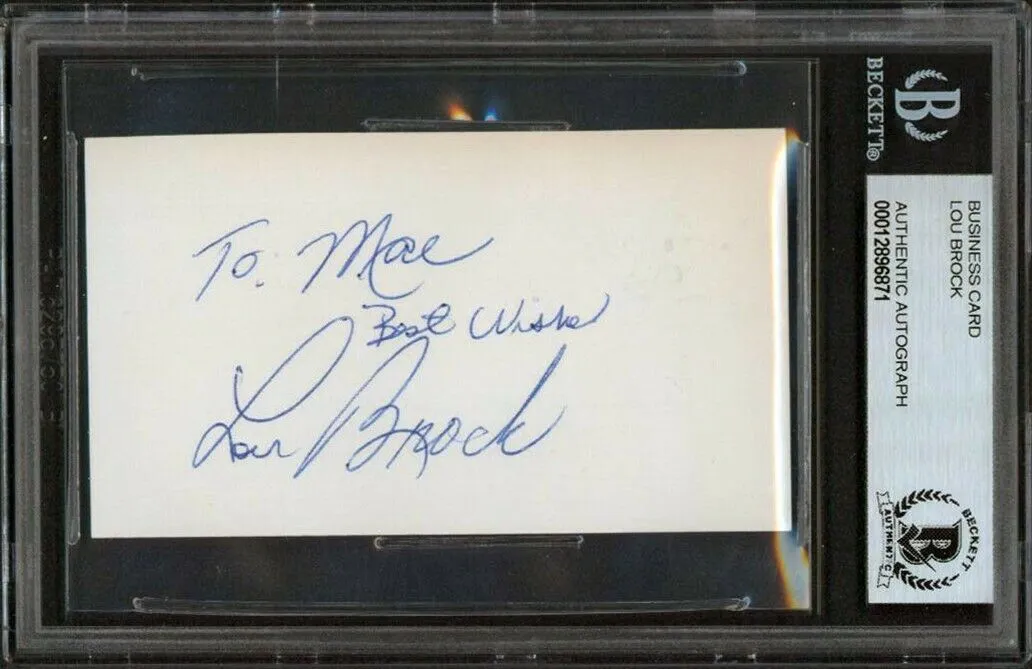 To. Mae
Best Wishes
Lou Brock
BECKETT®
B
BUSINESS CARD
LOU BROCK
AUTHENTIC AUTOGRAPH
00012896871
BECKETT
B
AUTHENTIC